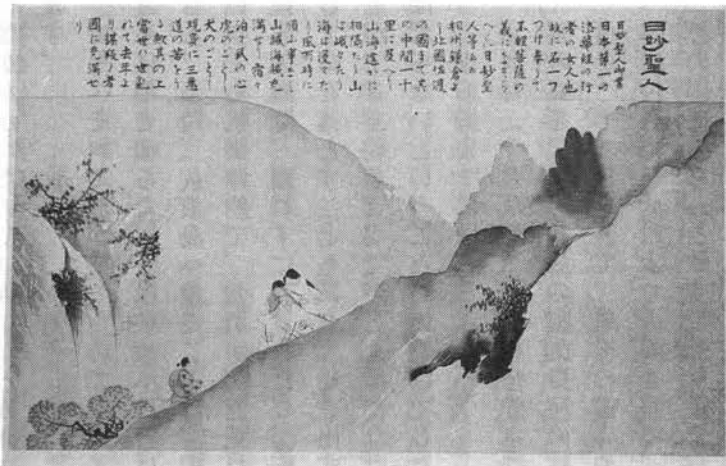 日妙聖人
日妙聖人御書
日本第一の
法華経の行
者の女人也
故に名一つ
つけ奉りて
不軽菩薩の
義になぞら
へん日妙聖
人等云々
相州鎌倉よ
り北國佐渡
の國まで其
の中間一千
里に及へり
山海遥かに
相隔たり山
は峨々たり
海は濤々た
り風雨時に
順ふ事なし
山賊海賊充
満せり宿々
泊々民の心
虎のことし
犬のことし
現身に三悪
道の苦をふ
る歟其の上
當世は世乱
れて去年よ
り謀叛の者
國に充満せ
り